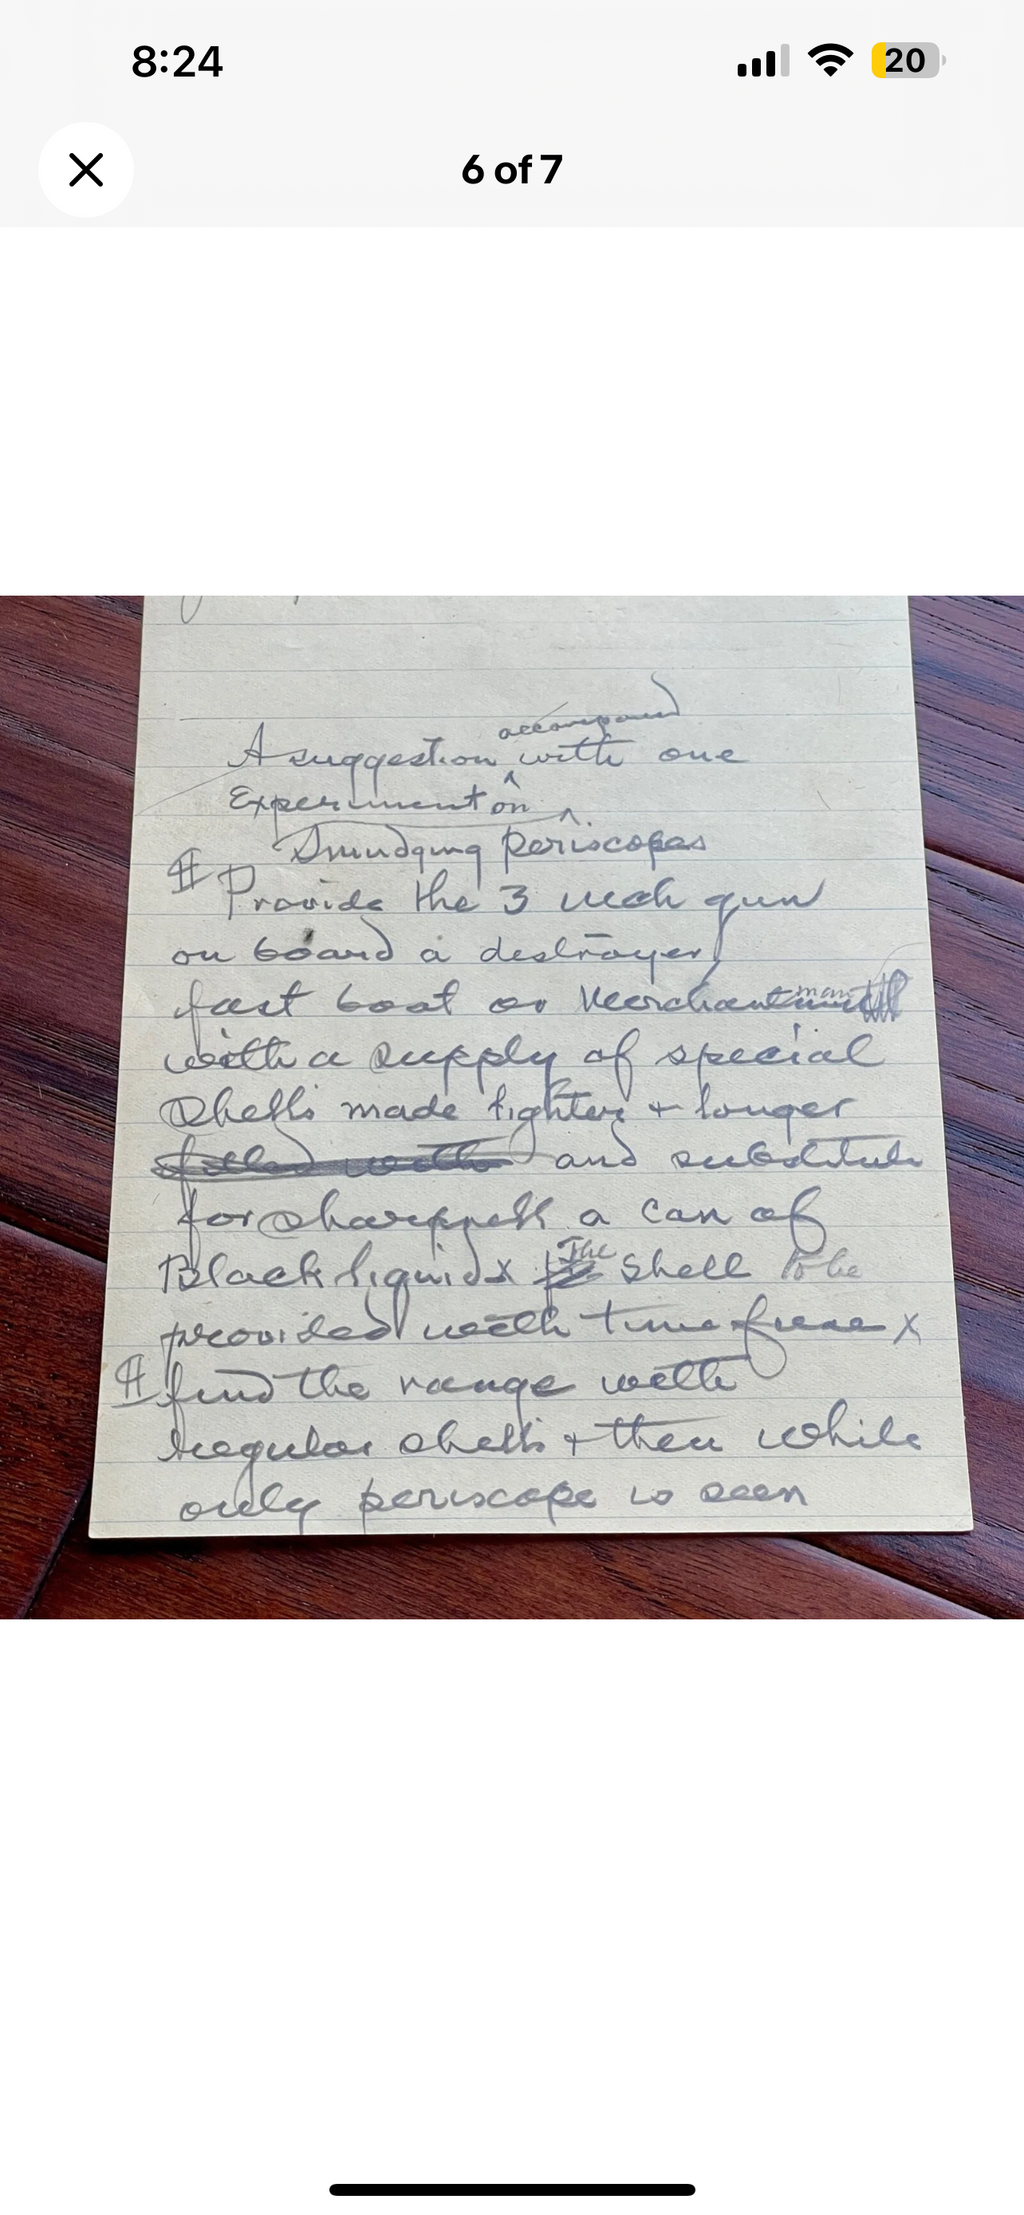 8:24
20
6 of 7
accompanied
A suggestion ^ with one
Experiment on ^.
Smudging periscopes
Provide the 3 inch gun
on board a destroyer,
fast boat or Merchantman
with a supply of special
Shells made lighter + longer
filled with and substitute
for sharpnell a can of
Black liquid x The Shell to be
provided with time fuse x
find the range with
regular shells + then while
only periscope is seen